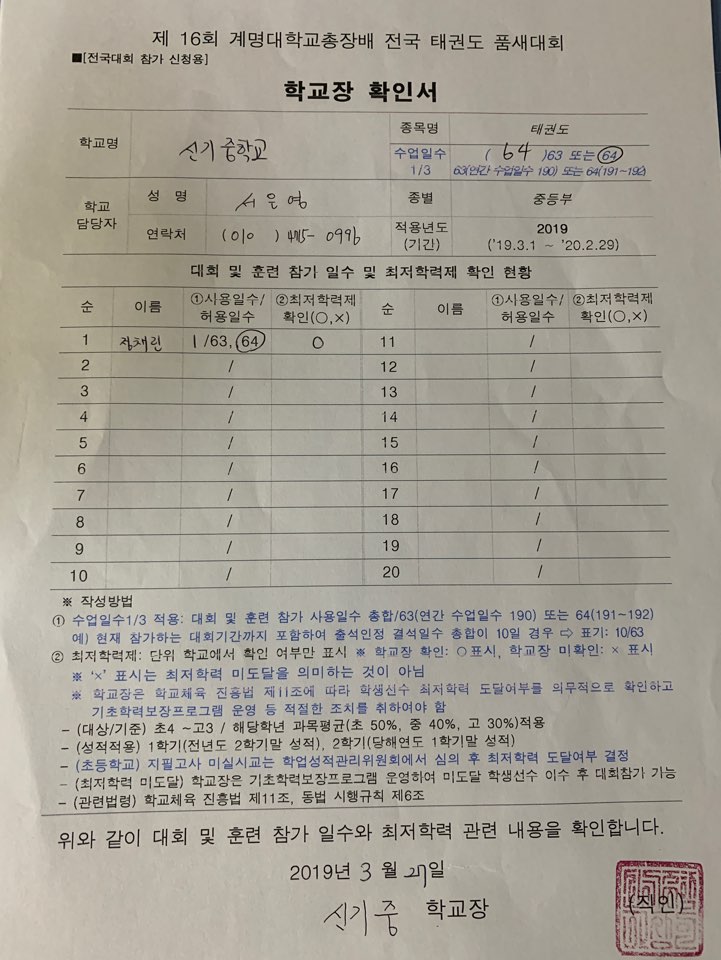 제 16회 계명대학교총장배 전국 태권도 품새대회
■[전국대회 참가 신청용]
학교장 확인서
학교명 신기중학교 종목명 태권도
수업일수 1/3 ( 64 )63 또는 64
63(연간 수업일수 190) 또는 64(191~192)
학교 담당자 성 명 서은영 종별 중등부
연락처 (010 ) 4715- 0996 적용년도 (기간) 2019 ('19.3.1 ~ '20.2.29)
대회 및 훈련 참가 일수 및 최저학력제 확인 현황
순 이름 ①사용일수/허용일수 ②최저학력제 확인(○,×) 순 이름 ①사용일수/허용일수 ②최저학력제 확인(○,×)
1 장채린 1/63, 64 O 11 /
2 / 12 /
3 / 13 /
4 / 14 /
5 / 15 /
6 / 16 /
7 / 17 /
8 / 18 /
9 / 19 /
10 / 20 /
※ 작성방법
① 수업일수1/3 적용: 대회 및 훈련 참가 사용일수 총합/63(연간 수업일수 190) 또는 64(191~192)
예) 현재 참가하는 대회기간까지 포함하여 출석인정 결석일수 총합이 10일 경우 ⇨ 표기: 10/63
② 최저학력제: 단위 학교에서 확인 여부만 표시 ※ 학교장 확인: ○표시, 학교장 미확인: × 표시
※ '×' 표시는 최저학력 미도달을 의미하는 것이 아님
※ 학교장은 학교체육 진흥법 제11조에 따라 학생선수 최저학력 도달여부를 의무적으로 확인하고
기초학력보장프로그램 운영 등 적절한 조치를 취하여야 함
- (대상/기준) 초4 ~고3 / 해당학년 과목평균(초 50%, 중 40%, 고 30%)적용
- (성적적용) 1학기(전년도 2학기말 성적), 2학기(당해연도 1학기말 성적)
- (초등학교) 지필고사 미실시교는 학업성적관리위원회에서 심의 후 최저학력 도달여부 결정
- (최저학력 미도달) 학교장은 기초학력보장프로그램 운영하여 미도달 학생선수 이수 후 대회참가 가능
- (관련법령) 학교체육 진흥법 제11조, 동법 시행규칙 제6조
위와 같이 대회 및 훈련 참가 일수와 최저학력 관련 내용을 확인합니다.
2019년 3 월 27일
신기중 학교장 (직인)